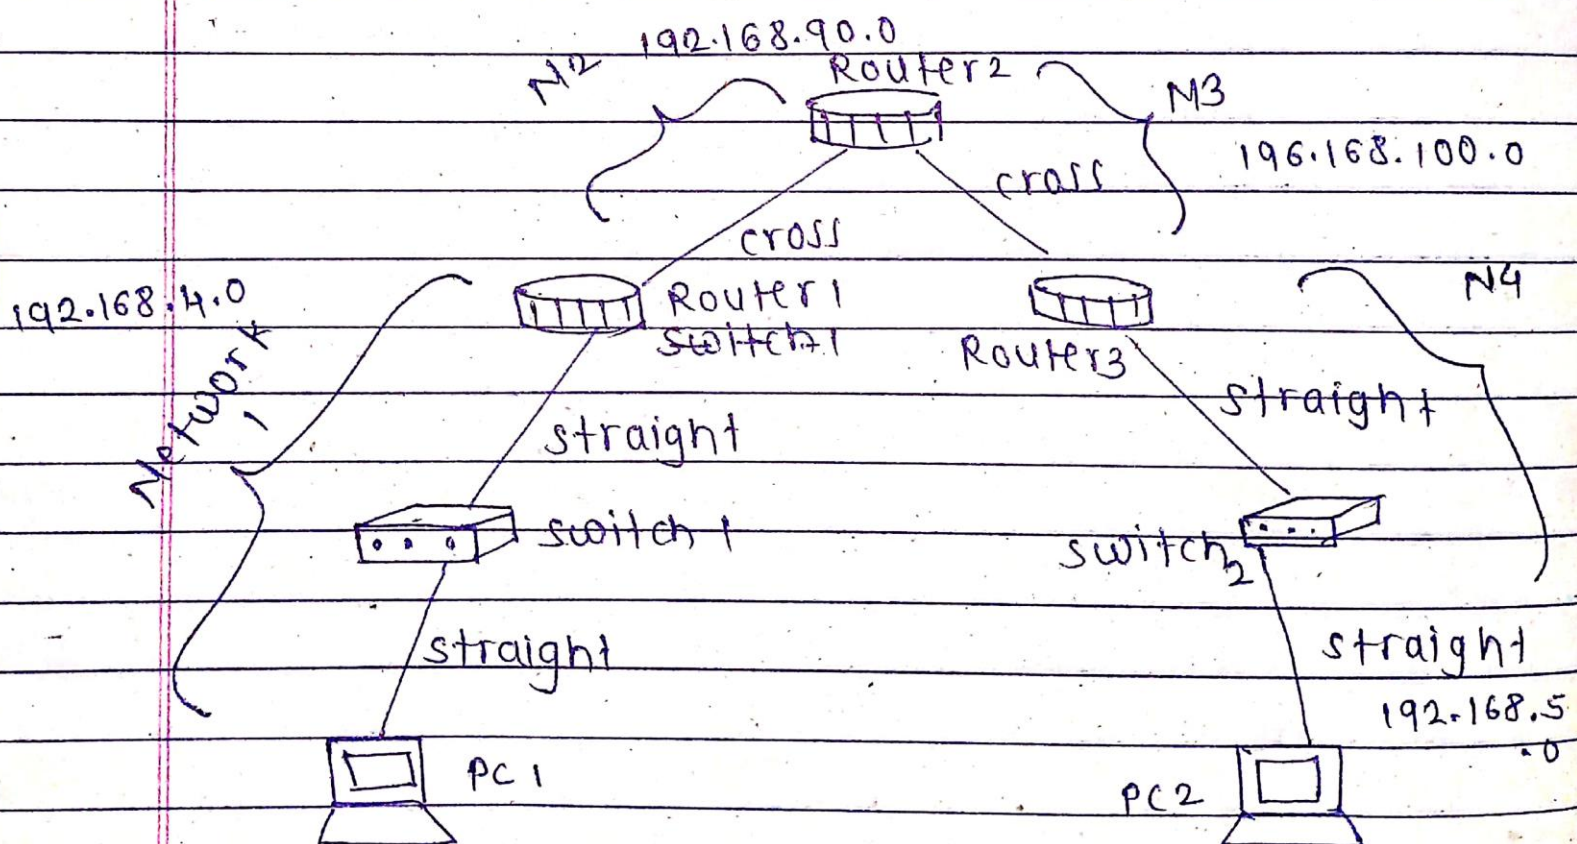 192.168.90.0
N2
Router2
N3
196.168.100.0
cross
cross
192.168.4.0
Router1
switch1
N4
Network
1
Router3
straight
straight
switch 1
switch2
straight
straight
192.168.5
.0
PC1
PC2